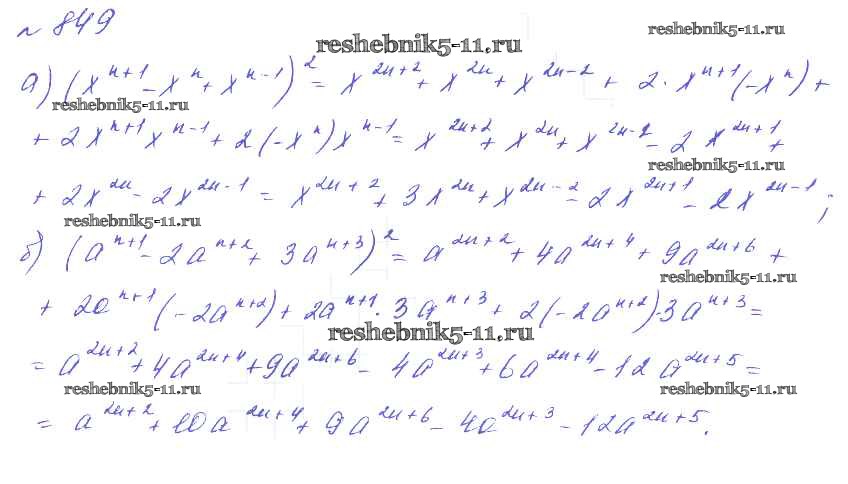 № 849
reshebnik5-11.ru
reshebnik5-11.ru
а) (xⁿ⁺¹ - xⁿ + xⁿ⁻¹)² = x²ⁿ⁺² + x²ⁿ + x²ⁿ⁻² + 2·xⁿ⁺¹(-xⁿ) +
reshebnik5-11.ru
+ 2xⁿ⁺¹xⁿ⁻¹ + 2(-xⁿ)xⁿ⁻¹ = x²ⁿ⁺² + x²ⁿ + x²ⁿ⁻² - 2x²ⁿ⁺¹ +
reshebnik5-11.ru
+ 2x²ⁿ - 2x²ⁿ⁻¹ = x²ⁿ⁺² + 3x²ⁿ + x²ⁿ⁻² - 2x²ⁿ⁺¹ - 2x²ⁿ⁻¹;
reshebnik5-11.ru
б) (aⁿ⁺¹ - 2aⁿ⁺² + 3aⁿ⁺³)² = a²ⁿ⁺² + 4a²ⁿ⁺⁴ + 9a²ⁿ⁺⁶ +
reshebnik5-11.ru
+ 2aⁿ⁺¹(-2aⁿ⁺²) + 2aⁿ⁺¹·3aⁿ⁺³ + 2(-2aⁿ⁺²)·3aⁿ⁺³ =
reshebnik5-11.ru
= a²ⁿ⁺² + 4a²ⁿ⁺⁴ + 9a²ⁿ⁺⁶ - 4a²ⁿ⁺³ + 6a²ⁿ⁺⁴ - 12a²ⁿ⁺⁵ =
reshebnik5-11.ru
reshebnik5-11.ru
= a²ⁿ⁺² + 10a²ⁿ⁺⁴ + 9a²ⁿ⁺⁶ - 4a²ⁿ⁺³ - 12a²ⁿ⁺⁵.